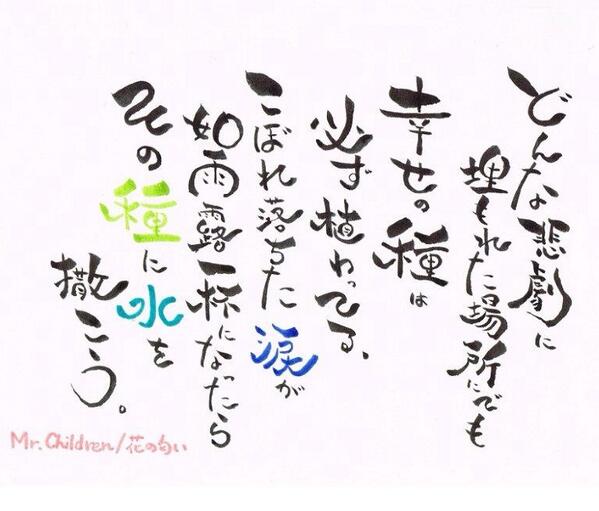 どんな悲劇に
埋もれた場所にでも
幸せの種は
必ず植わってる、
こぼれ落ちた涙が
如雨露一杯になったら
その種に水を
撒こう。
Mr.Children/花の匂い